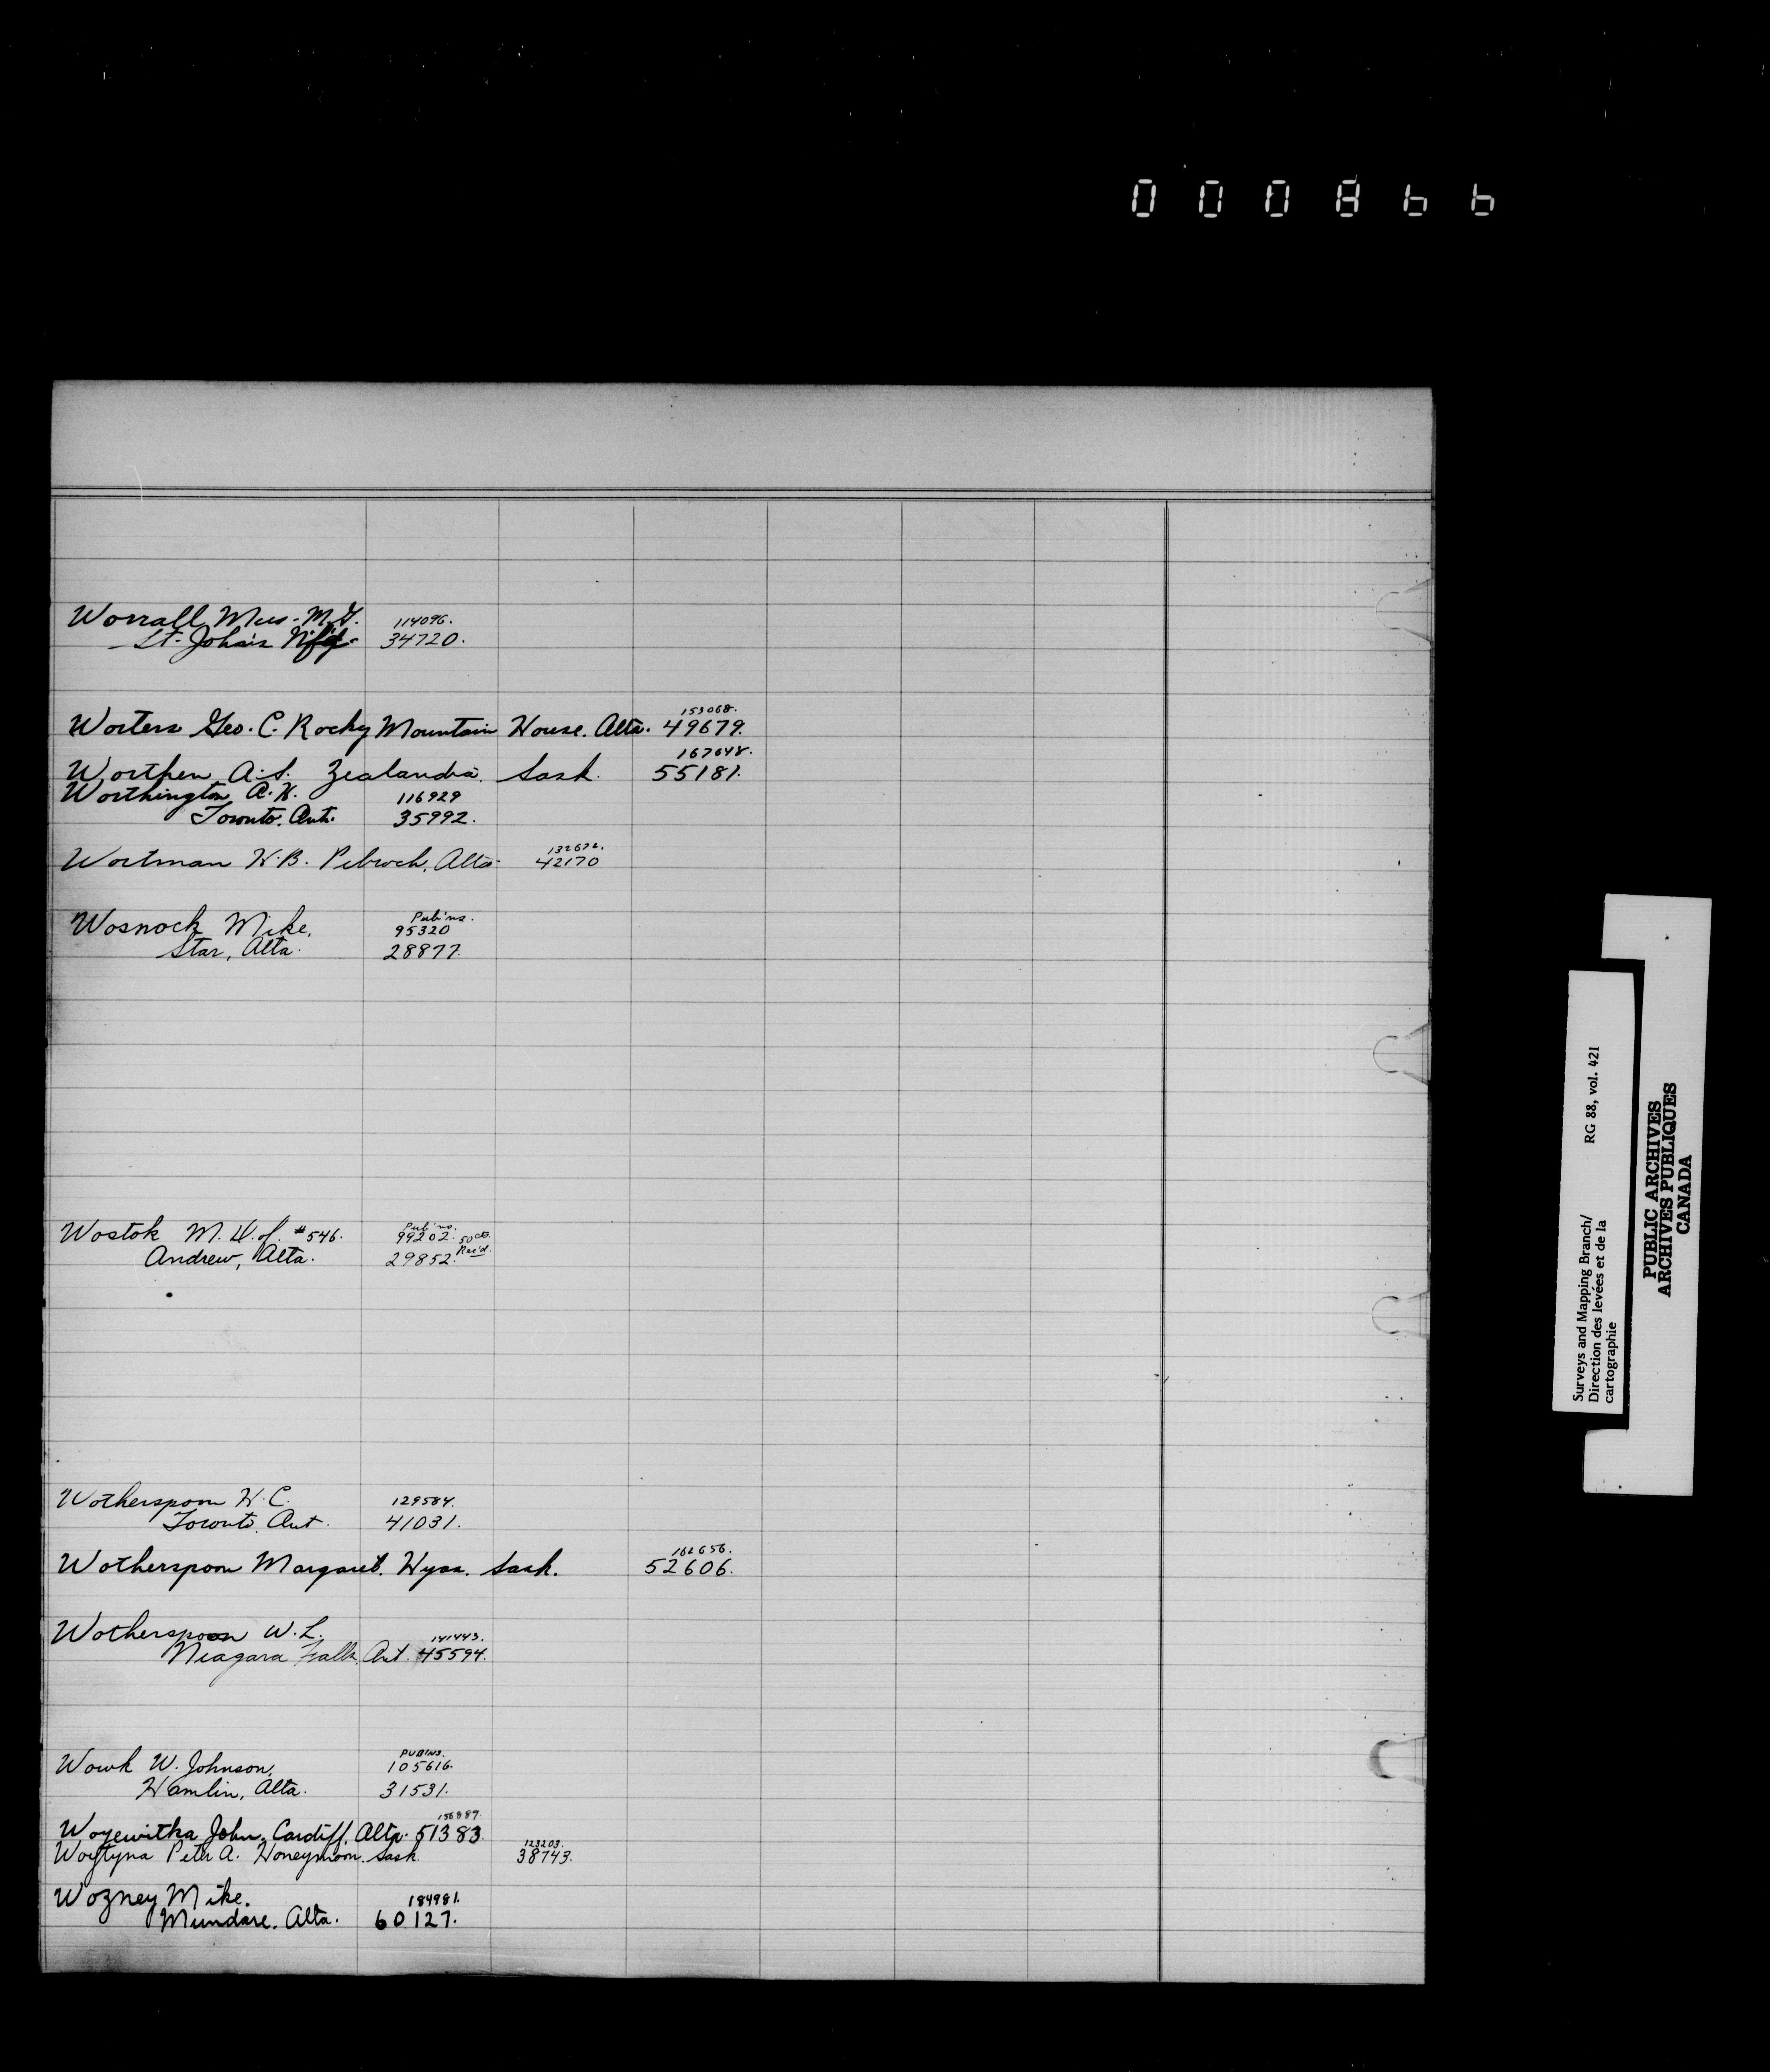 000866
Worrall Mrs. M.G. 114096.
St. John's Nfld. 34720.
153068.
Worters Geo. C. Rocky Mountain House. Alta. 49679.
167648.
Worthen A.S. Zealandia. Sask. 55181.
Worthington A.H. 116929
Toronto. Ont. 35992.
132672.
Wortman H.B. Pibroch, Alta. 42170
Pub'ns.
Wosnock Mike. 95320
Star, Alta. 28877.
Pub'ns.
Wostok M.D. of #546. 99202. 50¢
Andrew, Alta. 29852. Rec'd.
Wotherspoon H.C. 129584.
Toronto. Ont. 41031.
162656.
Wotherspoon Margaret. Hyas. Sask. 52606.
Wotherspoon W.L. 141443.
Niagara Falls, Ont. 45594.
PUBINS.
Wowk W. Johnson, 105616.
Hamlin, Alta. 31531.
156887.
Woyewitka John. Cardiff. Alta. 51383.
123203.
Woytyna Peter A. Honeymoon. Sask. 38743.
Wozney Mike. 184981.
Mundare. Alta. 60127.
Surveys and Mapping Branch/ RG 88, vol. 421
Direction des levées et de la
cartographie
PUBLIC ARCHIVES
ARCHIVES PUBLIQUES
CANADA